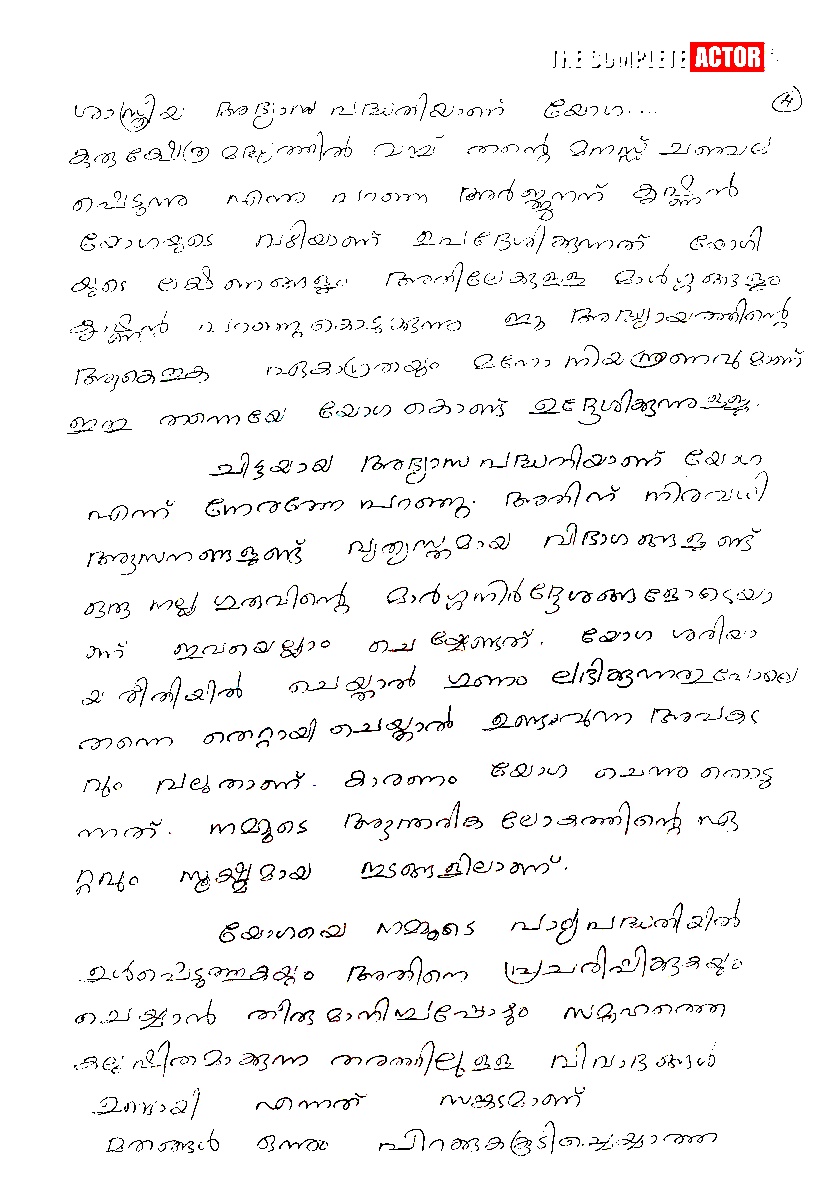 THE COMPLETE ACTOR
4
ശാസ്ത്രീയ അഭ്യാസ പദ്ധതിയാണ് യോഗ....
കുരുക്ഷേത്ര മദ്ധ്യത്തിൽ വച്ച് തന്റെ മനസ്സ് ചഞ്ചല
പ്പെടുന്നു എന്നു പറഞ്ഞ അർജ്ജുനന് കൃഷ്ണൻ
യോഗയുടെ വഴിയാണ് ഉപദേശിക്കുന്നത് യോഗി
യുടെ ലക്ഷണങ്ങളും അതിലേക്കുള്ള മാർഗ്ഗങ്ങളും
കൃഷ്ണൻ പറഞ്ഞുകൊടുക്കുന്നു ഈ അദ്ധ്യായത്തിന്റെ
ആകെത്തുക ഏകാഗ്രതയും മനോനിയന്ത്രണവുമാണ്
ഇതു തന്നെയേ യോഗ കൊണ്ട് ഉദ്ദേശിക്കുന്നുള്ളൂ.
ചിട്ടയായ അഭ്യാസ പദ്ധതിയാണ് യോഗ
എന്ന് നേരത്തേ പറഞ്ഞു. അതിന് നിരവധി
ആസനങ്ങളുണ്ട് വ്യത്യസ്തമായ വിഭാഗങ്ങളുണ്ട്
ഒരു നല്ല ഗുരുവിന്റെ മാർഗ്ഗനിർദ്ദേശങ്ങളോടെയാ
ണ് ഇവയെല്ലാം ചെയ്യേണ്ടത്. യോഗ ശരിയാ
യ രീതിയിൽ ചെയ്താൽ ഗുണം ലഭിക്കുന്നതുപോലെ
തന്നെ തെറ്റായി ചെയ്താൽ ഉണ്ടാവുന്ന അപകട
വും വലുതാണ്. കാരണം യോഗ ചെന്നു തൊടു
ന്നത്. നമ്മുടെ ആന്തരിക ലോകത്തിന്റെ ഏ
റ്റവും സൂക്ഷ്മമായ ഇടങ്ങളിലാണ്.
യോഗയെ നമ്മുടെ പാഠ്യപദ്ധതിയിൽ
ഉൾപ്പെടുത്തുകയും അതിനെ പ്രചരിപ്പിക്കുകയും
ചെയ്യാൻ തീരുമാനിച്ചപ്പോഴും സമൂഹത്തെ
കലുഷിതമാക്കുന്ന തരത്തിലുള്ള വിവാദങ്ങൾ
ഉണ്ടായി എന്നത് സങ്കടമാണ്
മതങ്ങൾ ഒന്നും പിറക്കുകകൂടിച്ചെയ്യാത്ത